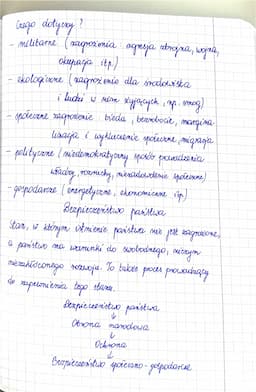 Czego dotyczy?
- militarne (zagrożenia agresja zbrojna, wojna,
okupacja itp.)
- ekologiczne (zagrożenie dla środowiska
i ludzi w nim żyjących, np. smog)
- społeczne zagrożenie bieda, bezrobocie, margina-
lizacja i wykluczenie społeczne, migracja
- polityczne (niedemokratyczny sposób prowadzenia
władzy, rozruchy, niezadowolenie społeczne)
- gospodarcze (energetyczne, ekonomiczne itp.)
Bezpieczeństwo państwa
Stan, w którym istnienie państwa nie jest zagrożone,
a państwo ma warunki do swobodnego,
niezakłóconego rozwoju. To także proces prowadzący
do zapewnienia tego stanu.
Bezpieczeństwo państwa
↓
Obrona narodowa
↓
Ochrona
↓
Bezpieczeństwo społeczno-gospodarcze